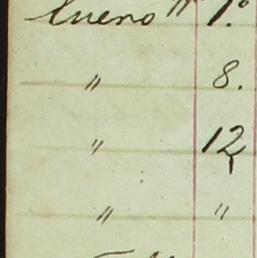 Enero " 1.º
" 8.
" 12
" "